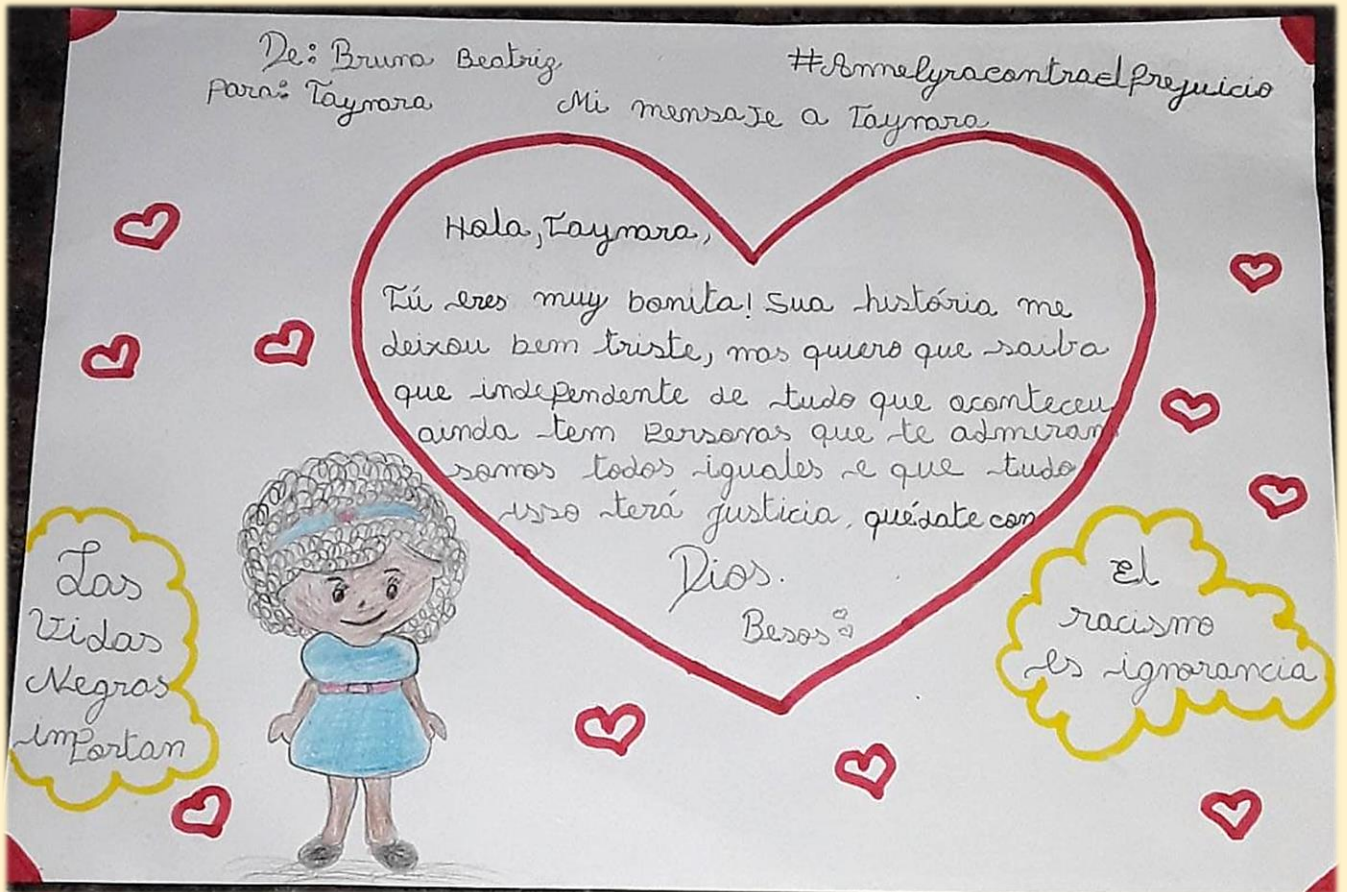 De: Bruna Beatriz
#Annelyracontraelprejuicio
Para: Taynara
Mi mensaje a Taynara
Hola, Taynara,
Tú eres muy bonita! Sua história me
deixou bem triste, mas quiero que saiba
que independente de tudo que aconteceu
ainda tem personas que te admiram
somos todos iguales e que tudo
isso terá justicia, quédate con
Dios.
Besos
Las
Vidas
Negras
importan
El
racismo
es ignorancia